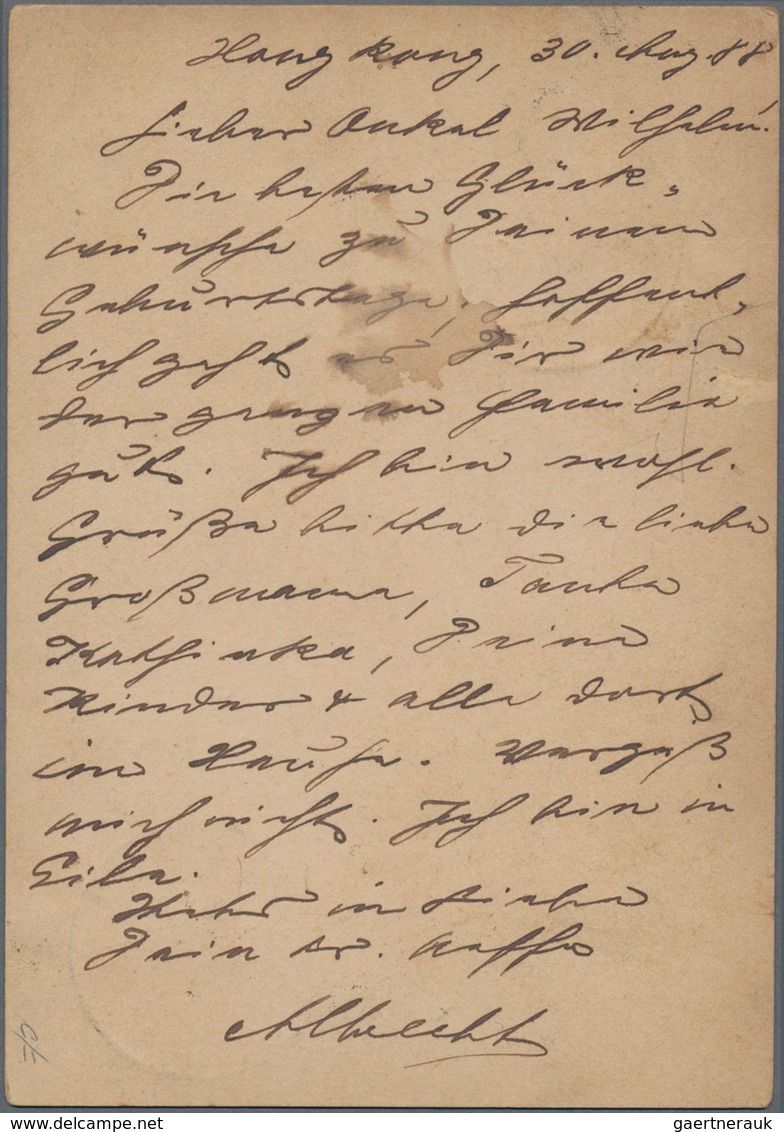 Hongkong, 30. Aug. 88
Lieber Onkel Wilhelm!
Die besten Glück„
wünsche zu Deinem
Geburtstage, hoffent„
lich geht es Dir wie
der ganzen Familie
gut. Ich bin wohl.
Grüße bitte die liebe
Großmama, Tante
Kathinka, Deine
Kinder & alle dort
im Hause. Vergeß
mich nicht. Ich bin in
Eile.
Stets in Liebe
Dein tr. Neffe
Albrecht
delcampe.net
gaertnerauk